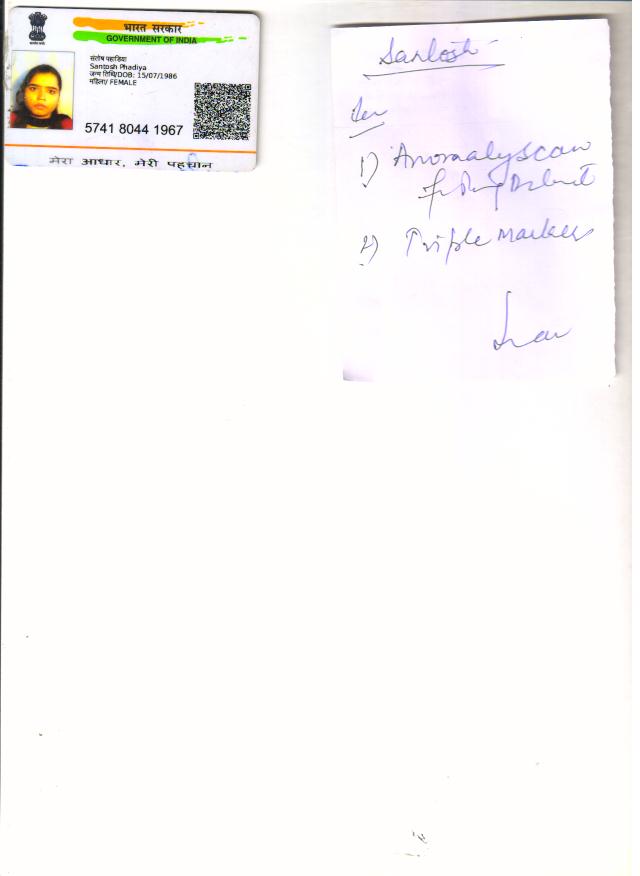 भारत सरकार
GOVERNMENT OF INDIA
संतोष पहाडिया
Santosh Phadiya
जन्म तिथि/DOB: 15/07/1986
महिला/ FEMALE
5741 8044 1967
मेरा आधार, मेरी पहचान
Santosh
Adv
1) Anomaly Scan
2) Triple Markers